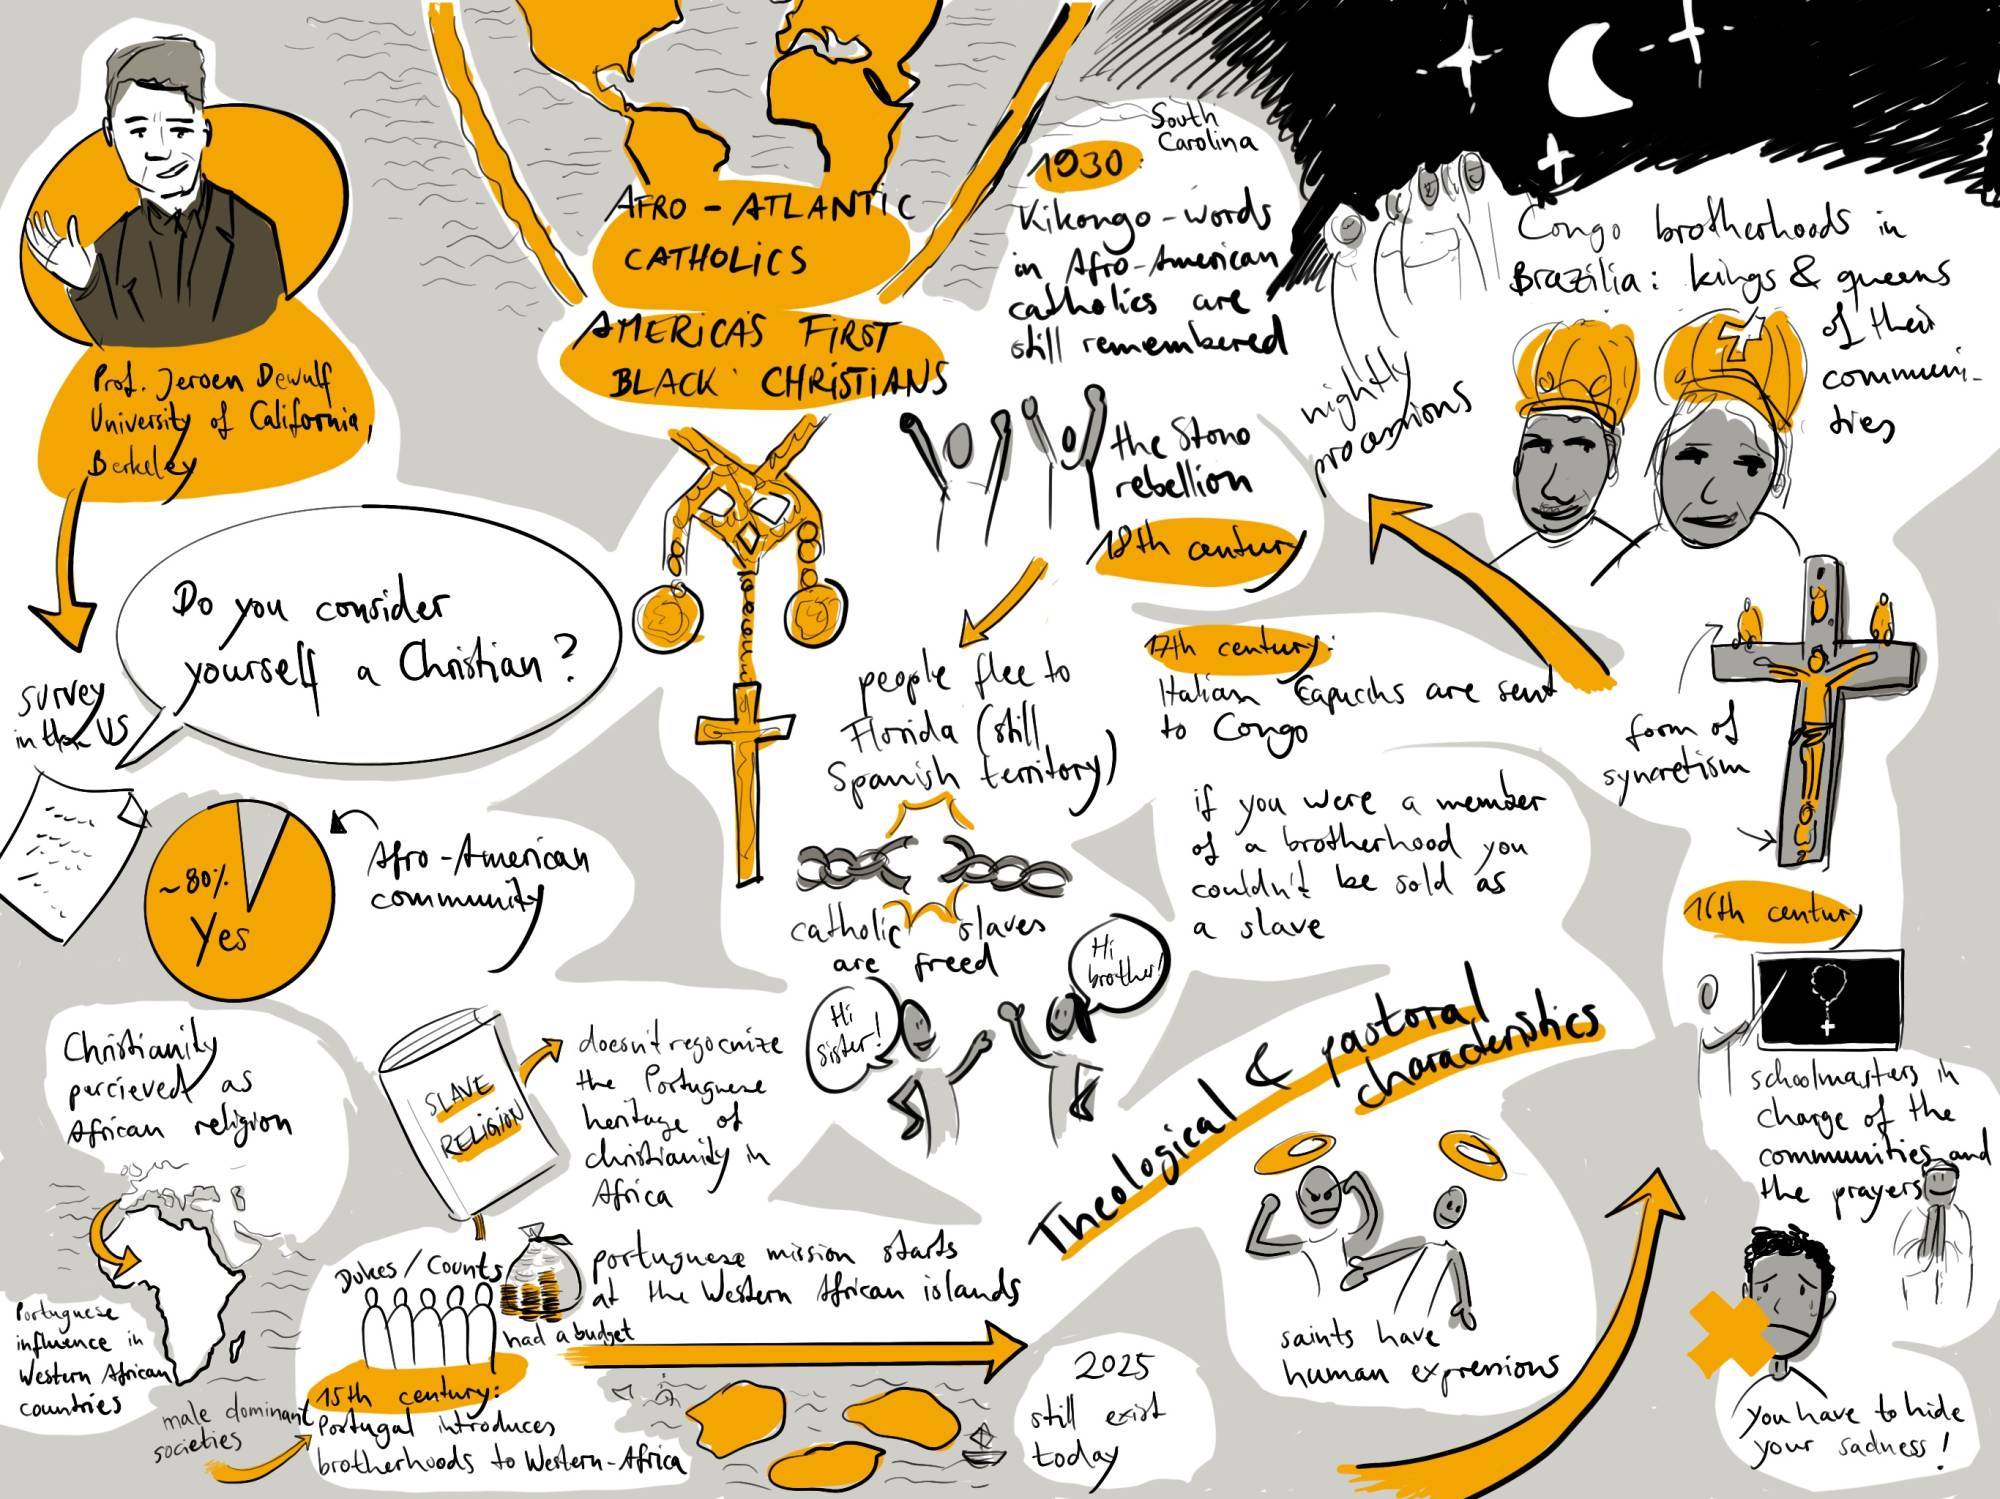 AFRO-ATLANTIC
CATHOLICS
AMERICA'S FIRST
BLACK CHRISTIANS
Prof. Jeroen Dewulf
University of California,
Berkeley
survey
in the US
Do you consider
yourself a Christian?
~80%
Yes
Afro-American
community
Christianity
percieved as
African religion
Portuguese
influence in
Western African
countries
SLAVE
RELIGION
doesn't regocnize
the Portuguese
heritage of
christianity in
Africa
Dukes/Counts
had a budget
male dominant
societies
15th century:
Portugal introduces
brotherhoods to Western-Africa
portuguese mission starts
at the Western African islands
2025
still exist
today
Theological & pastoral
characteristics
saints have
human expressions
16th century
schoolmasters in
charge of the
communities and
the prayers
you have to hide
your sadness!
form of
syncretism
17th century:
Italian Capuchs are sent
to Congo
if you were a member
of a brotherhood you
couldn't be sold as
a slave
Congo brotherhoods in
Brazilia: kings & queens
of their
communi-
ties
nightly
processions
18th century
the Stono
rebellion
people flee to
Florida (still
Spanish territory)
catholic slaves
are freed
Hi
sister!
Hi
brother!
South
Carolina
1930:
Kikongo-words
in Afro-American
catholics are
still remembered